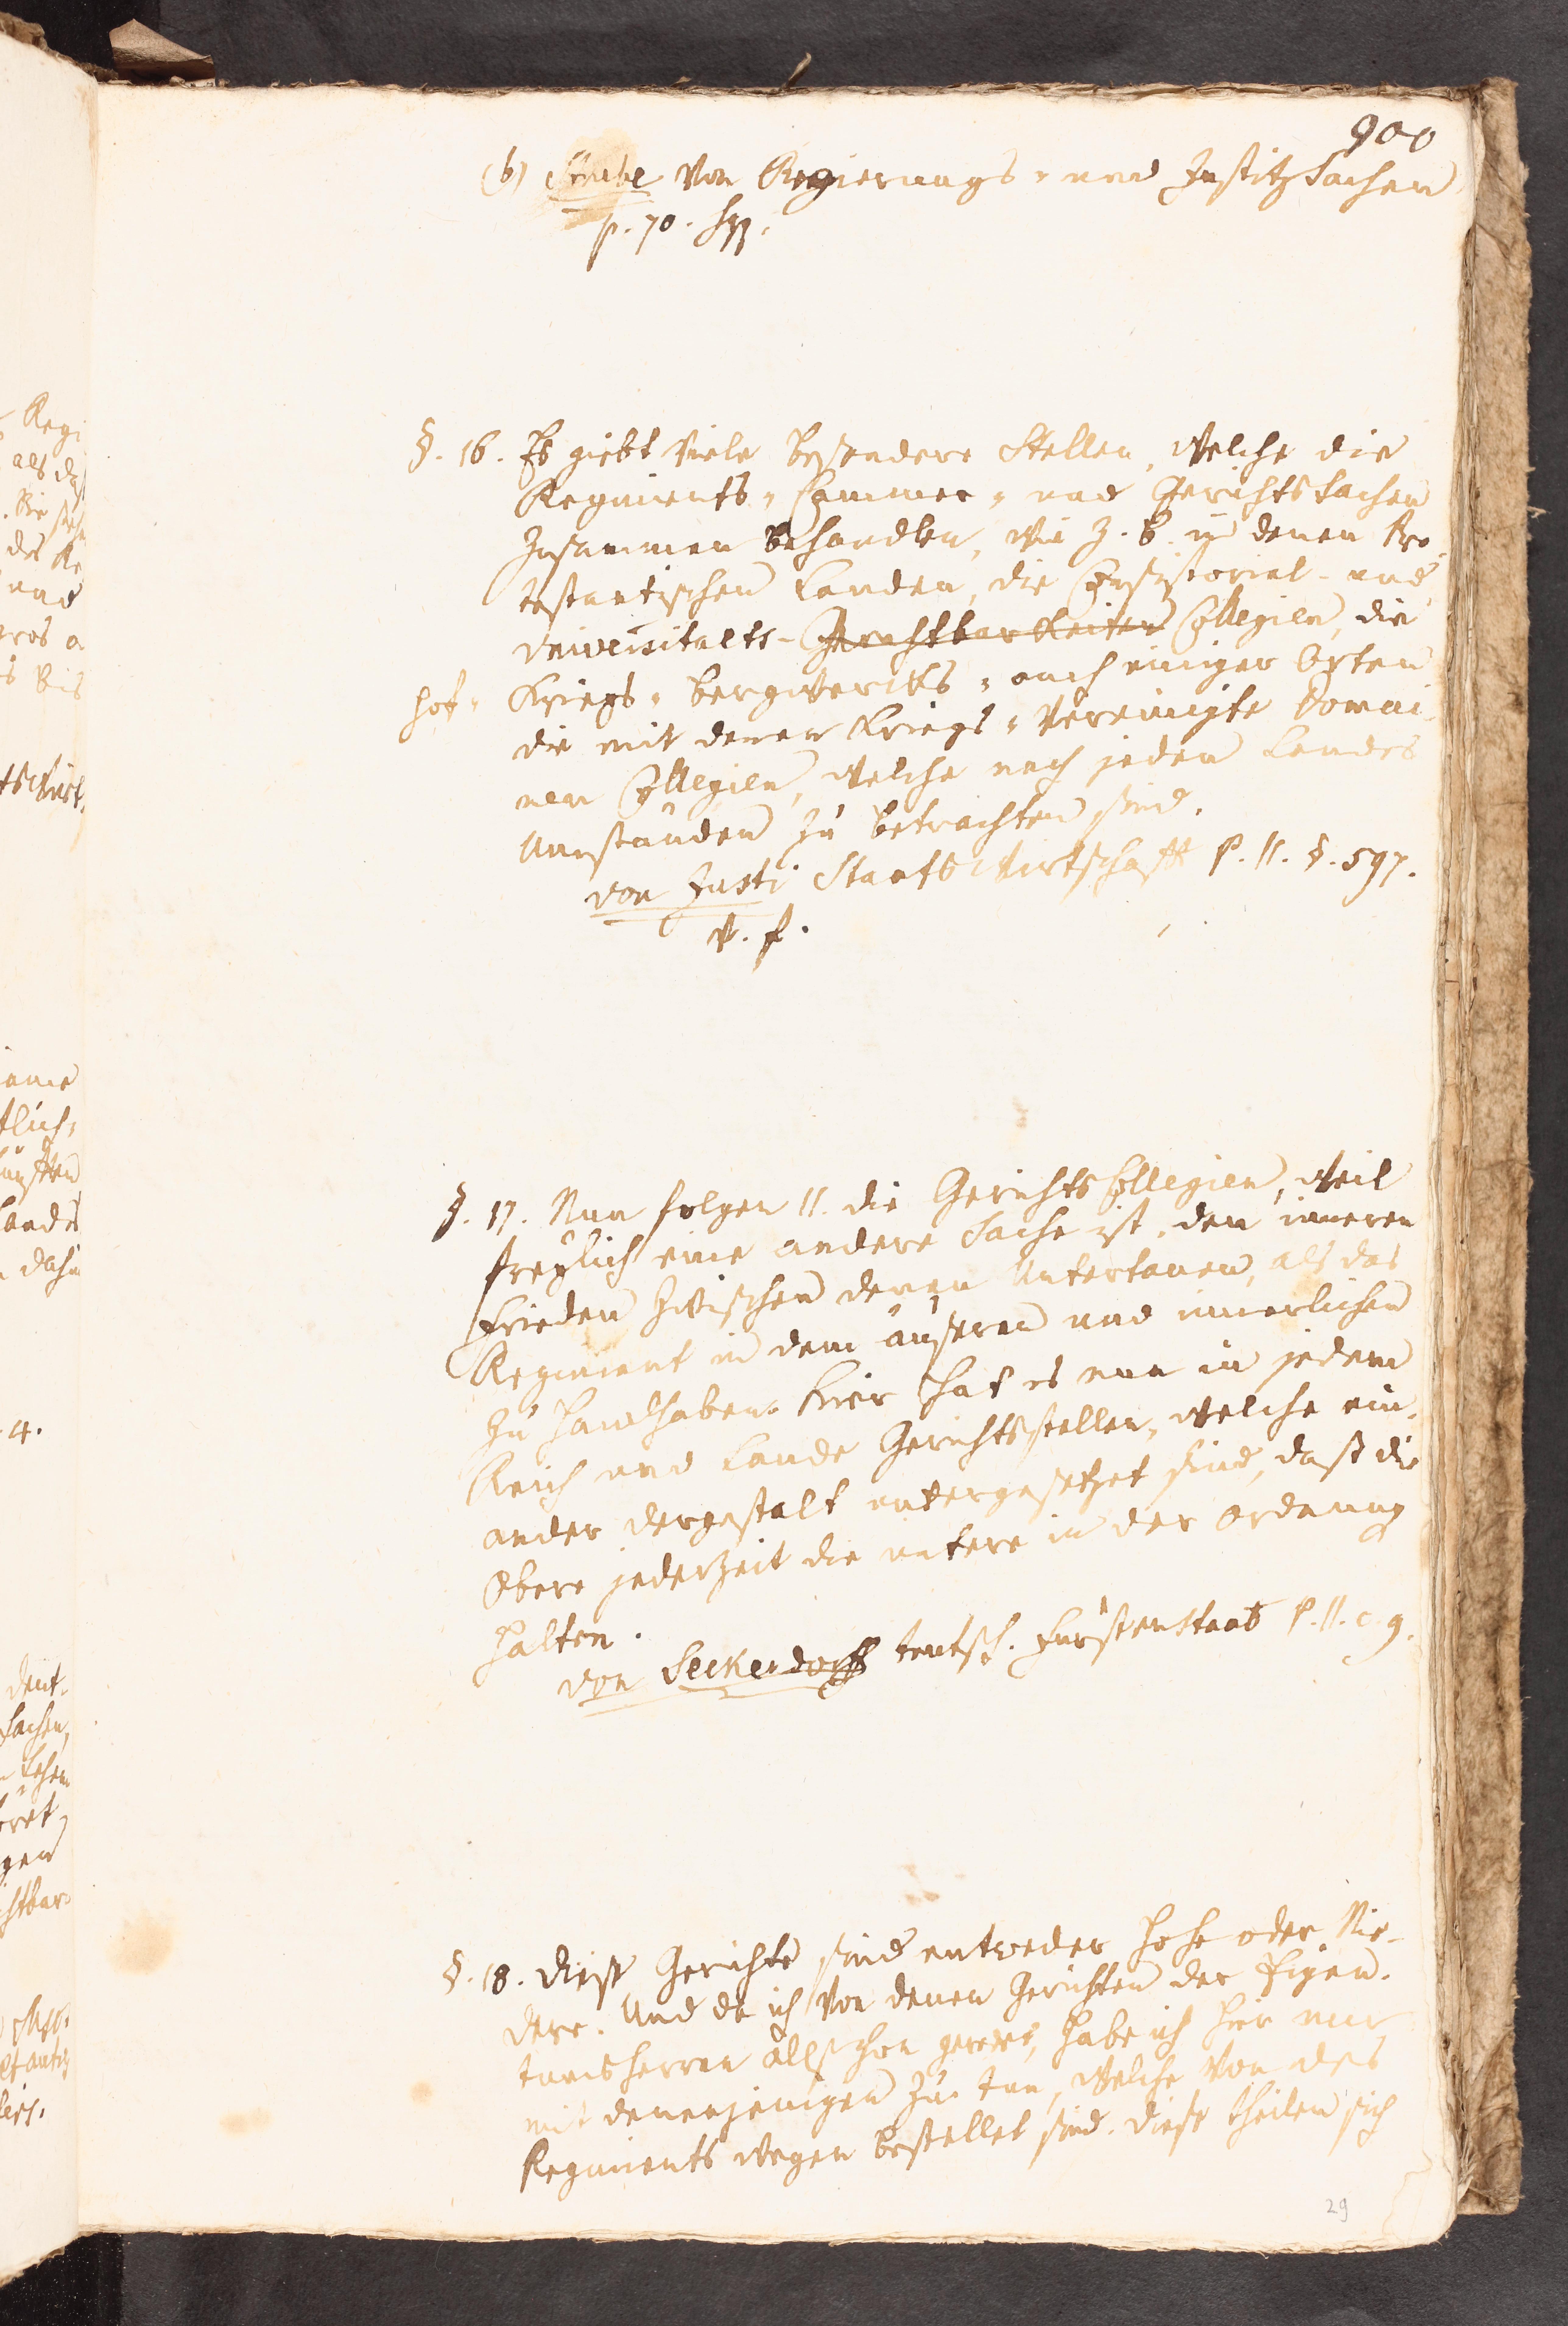 900
(b) Strube von Regierungs- und Justitz Sachen
p. 70. sqq.
§. 16. Es giebt viele besondere Stellen, welche die
Regiments- Cammer- und Gerichts Sachen
zusammen behandlen, wie z. B. in denen Pro-
testantischen Landen, die Consistorial- und
Universitaets- Gerichtbarkeiten Collegien, die
Hof- Kriegs- Bergwercks- auch einiger Orten
die mit denen Kriegs- vereinigte Domai-
nen Collegien, welche nach jeden Landes
Umständen zu betrachten sind.
von Justi Staats Wirtschafft P. II. §. 597.
u. f.
§. 17. Nun folgen II. die Gerichts Collegien, weil
freylich eine andere Sache ist, den inneren
Frieden zwischen denen Untertanen, als das
Regiment in dem äusseren und innerlichen
zu handhaben. Hier hat es nun in jedem
Reich und Lande Gerichtsstellen, welche ein-
ander dergestalt untergesetzet sind, dass die
Obere jederzeit die untere in der Ordnung
halten.
von Seckendorff teutsch. Fürstenstaat P. II. c. 9.
§. 18. Diese Gerichte sind entweder Hohe oder Nie-
dere. Und da ich von denen Gerichten der Eigen-
tumsherren allschon geredet, habe ich hier nur
mit denenjenigen zu tun, welche von des
Regiments wegen bestellet sind. Diese theilen sich
29